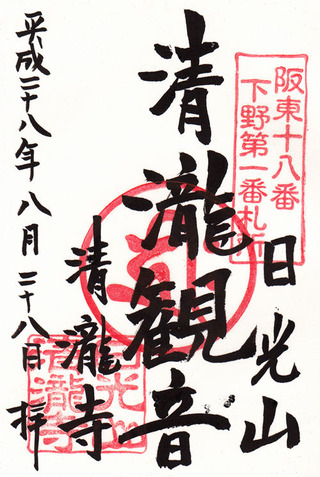 阪東十八番
下野第一番札所
日光山
清瀧観音
清瀧寺
平成二十八年八月二十八日拝
日光山
清瀧寺